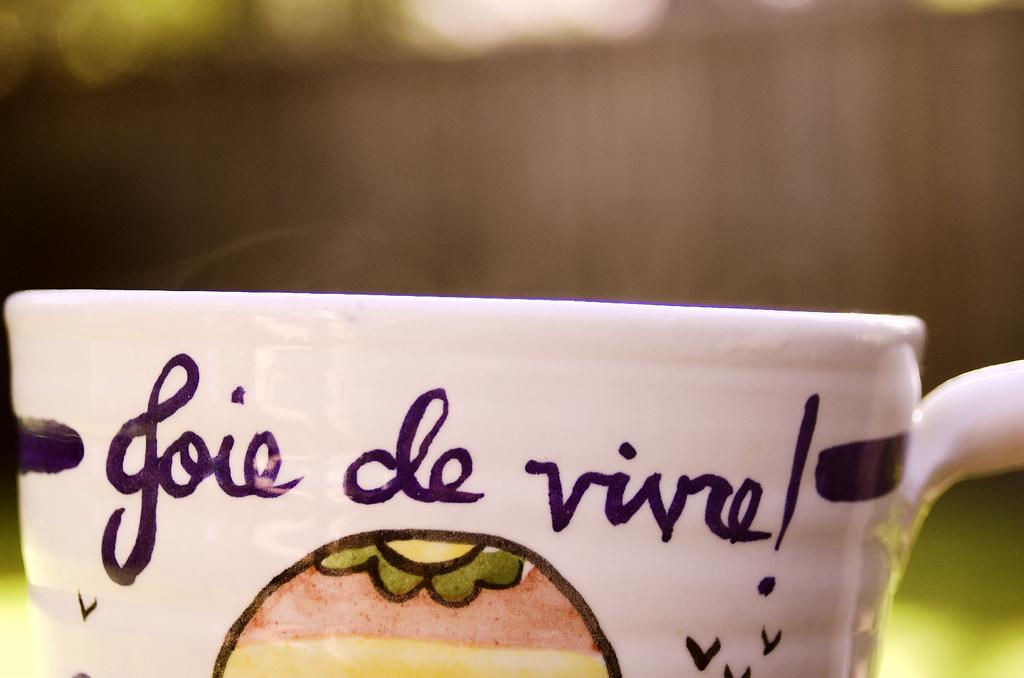 Joie de vivre!